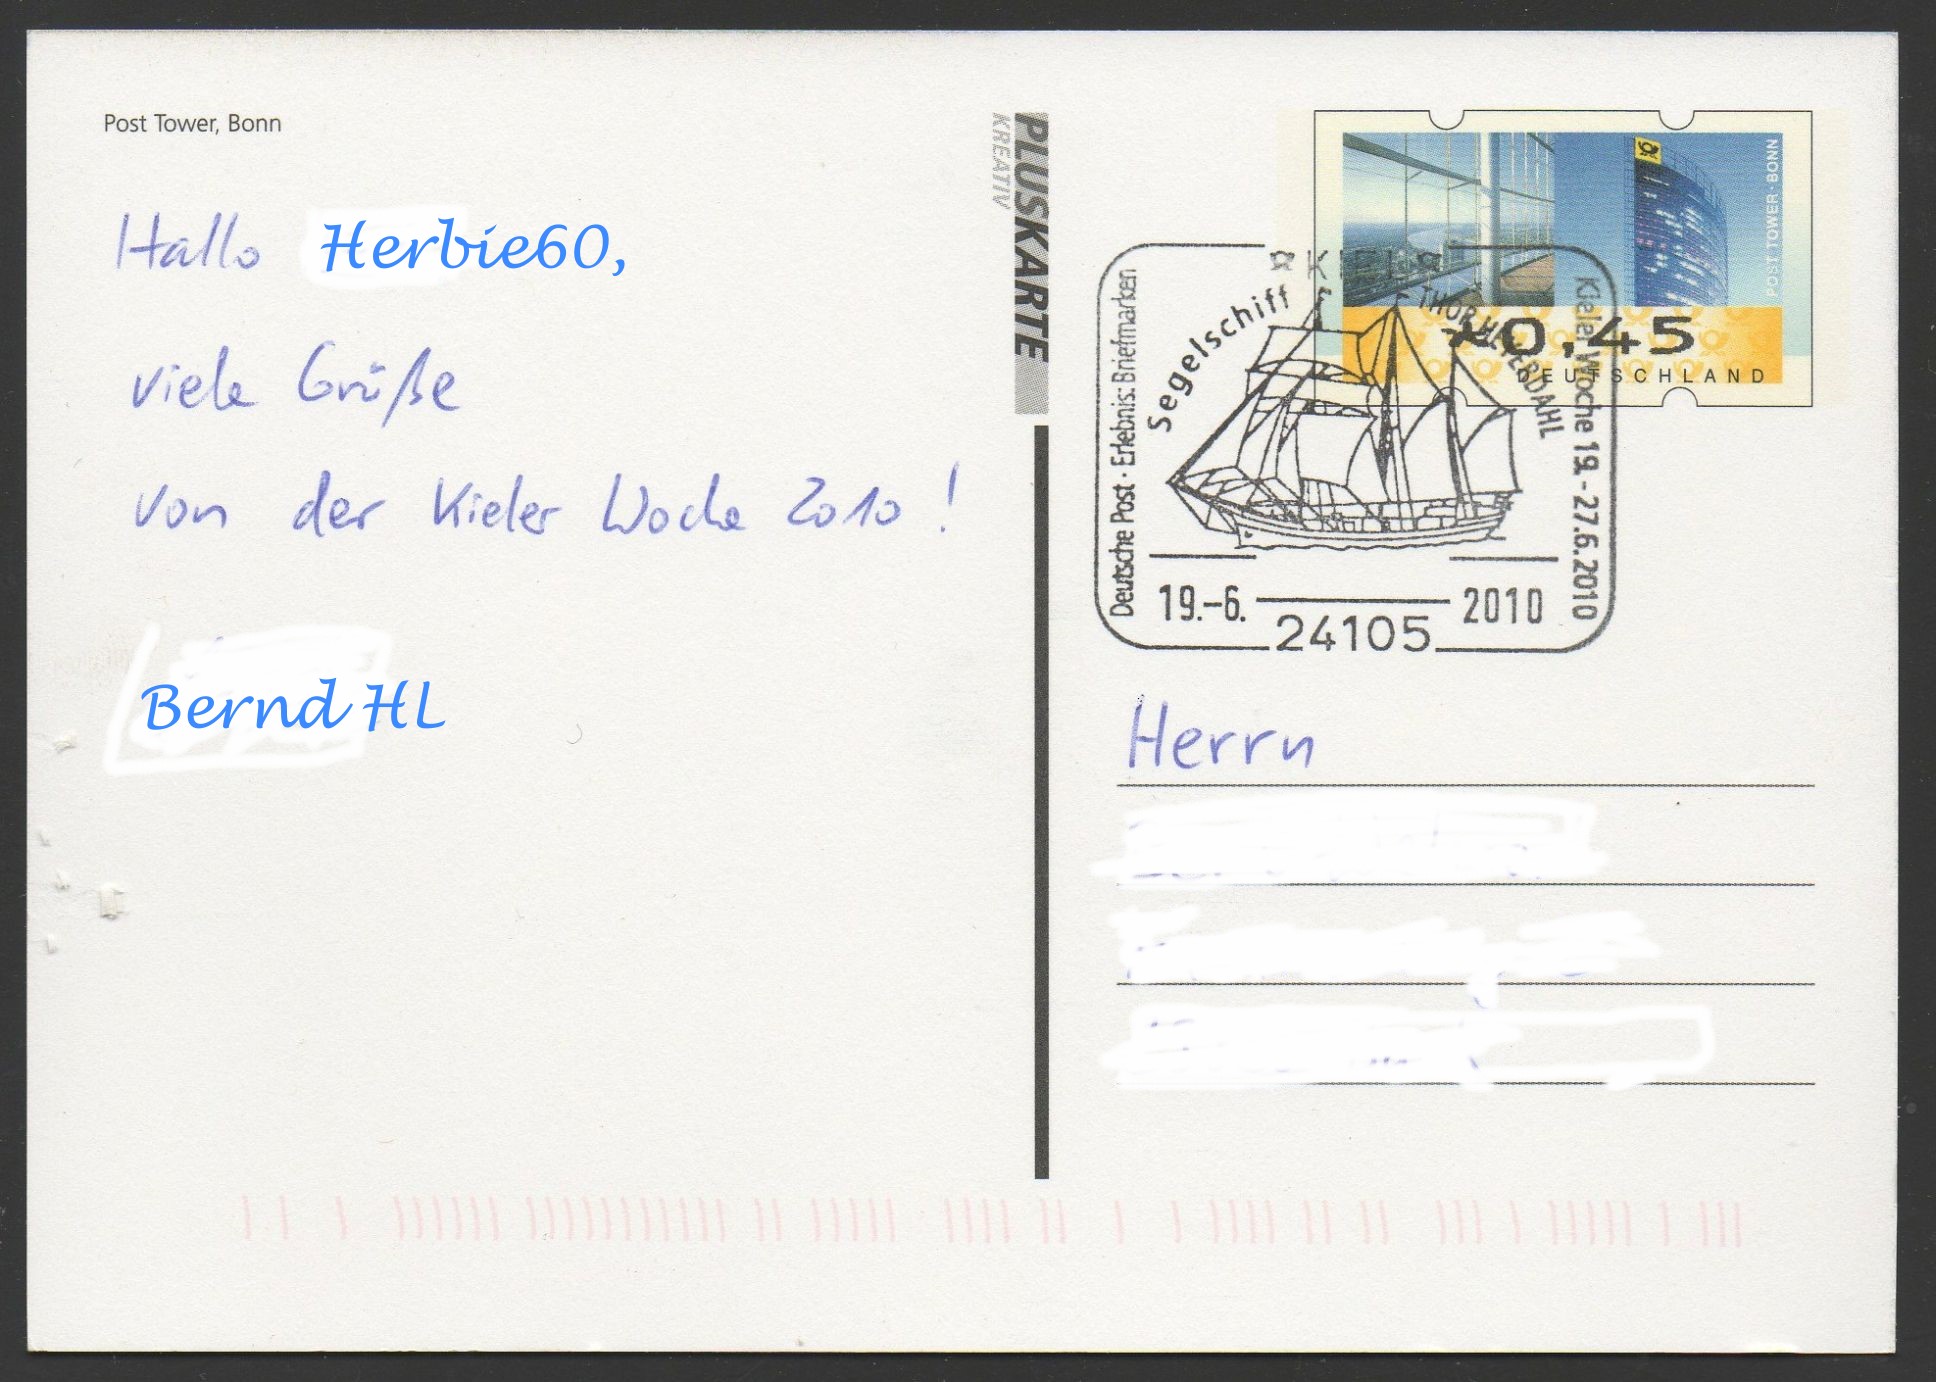 Post Tower, Bonn
Hallo Herbie60,
viele Grüße
von der Kieler Woche 2010!
Bernd HL
PLUSKARTE
KREATIV
POST TOWER · BONN
0,45
DEUTSCHLAND
KIEL
Segelschiff THOR HEYERDAHL
Deutsche Post · Erlebnis: Briefmarken
Kieler Woche 19. - 27.6.2010
19.-6. 2010
24105
Herrn